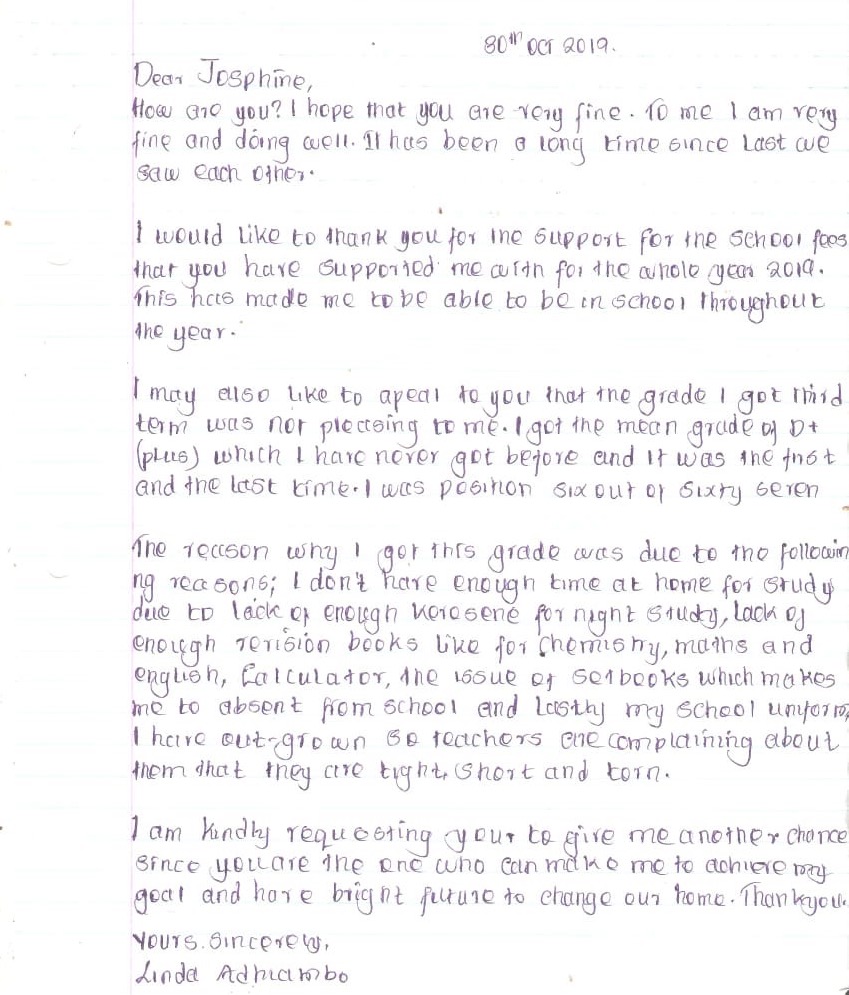 30th Oct 2019.
Dear Josphine,
How are you? I hope that you are very fine. To me I am very
fine and doing well. It has been a long time since last we
saw each other.
I would like to thank you for the support for the school fees
that you have supported me with for the whole year 2019.
This has made me to be able to be in school throughout
the year.
I may also like to apeal to you that the grade I got third
term was not pleasing to me. I got the mean grade of D+
(plus) which I have never got before and it was the first
and the last time. I was position six out of sixty seven
The reason why I got this grade was due to the followin
ng reasons; I don't have enough time at home for study
due to lack of enough kerosene for night study, lack of
enough revision books like for chemistry, maths and
english, Calculator, the issue of setbooks which makes
me to absent from school and lastly my school uniform,
I have out-grown so teachers are complaining about
them that they are tight, short and torn.
I am kindly requesting your to give me another chance
since you are the one who can make me to achieve my
goal and have bright future to change our home. Thankyou.
Yours. Sincerely,
Linda Adhiambo